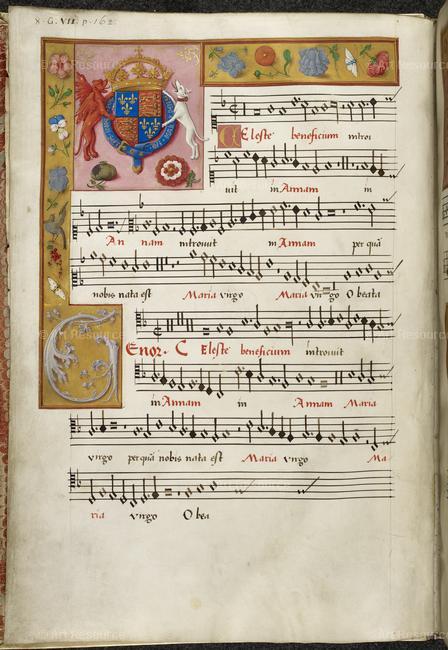 X·G·VII· p·162
Celeste beneficium introi
uit in Annam in
An nam introivit in Annam per quā
nobis nata est Maria virgo Maria virgo O beata
Tenor· Celeste beneficium introivit
in Annam in Annam Maria
virgo per quā nobis nata est Maria virgo Ma
ria virgo O bea
© Art Resource